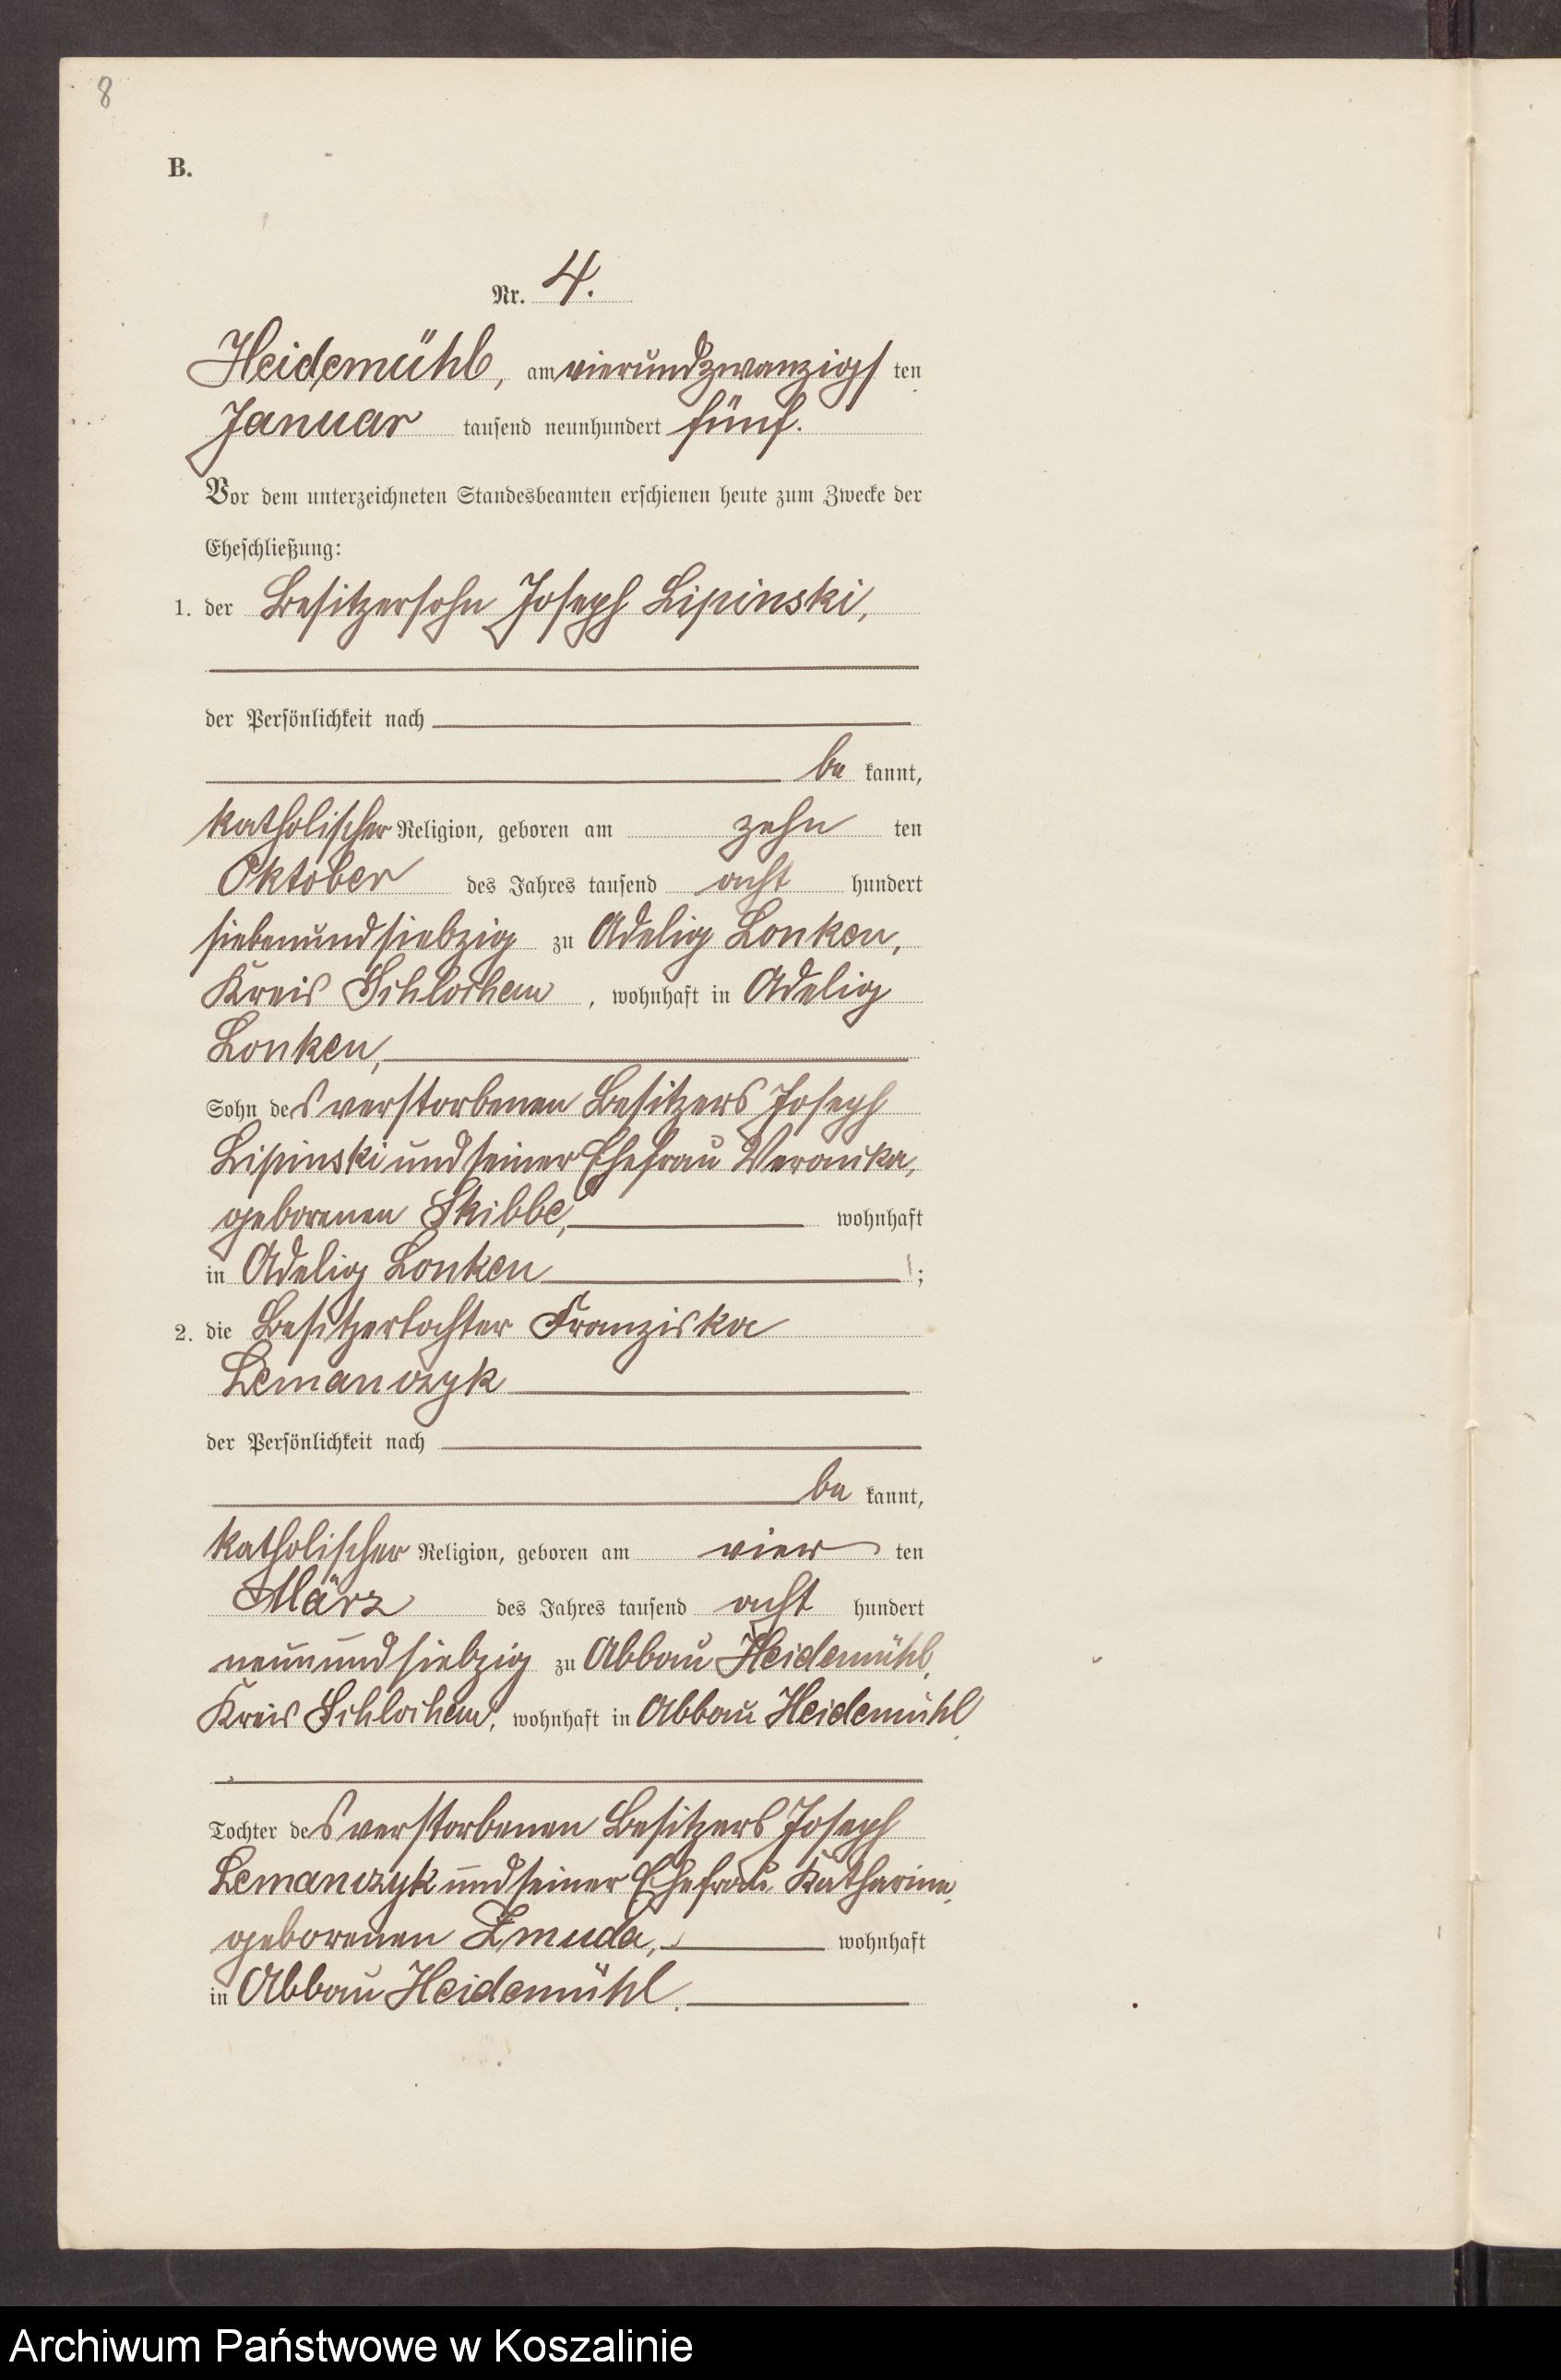 8
B.
Nr. 4.
Heidemühl, am vierundzwanzigs ten
Januar tausend neunhundert fünf.
Vor dem unterzeichneten Standesbeamten erschienen heute zum Zwecke der
Eheschließung:
1. der Besitzersohn Joseph Lipinski,
der Persönlichkeit nach
be kannt,
katholischer Religion, geboren am zehn ten
Oktober des Jahres tausend acht hundert
siebenundsiebzig zu Adelig Lonken,
Kreis Schlochau, wohnhaft in Adelig
Lonken,
Sohn des verstorbenen Besitzers Joseph
Lipinski und seiner Ehefrau Veronika,
geborenen Skibbe, wohnhaft
in Adelig Lonken ;
2. die Besitzertochter Franziska
Lemanczyk
der Persönlichkeit nach
be kannt,
katholischer Religion, geboren am vier ten
März des Jahres tausend acht hundert
neunundsiebzig zu Abbau Heidemühl,
Kreis Schlochau, wohnhaft in Abbau Heidemühl,
Tochter des verstorbenen Besitzers Joseph
Lemanczyk und seiner Ehefrau Katharina,
geborenen Zmuda, wohnhaft
in Abbau Heidemühl.
Archiwum Państwowe w Koszalinie